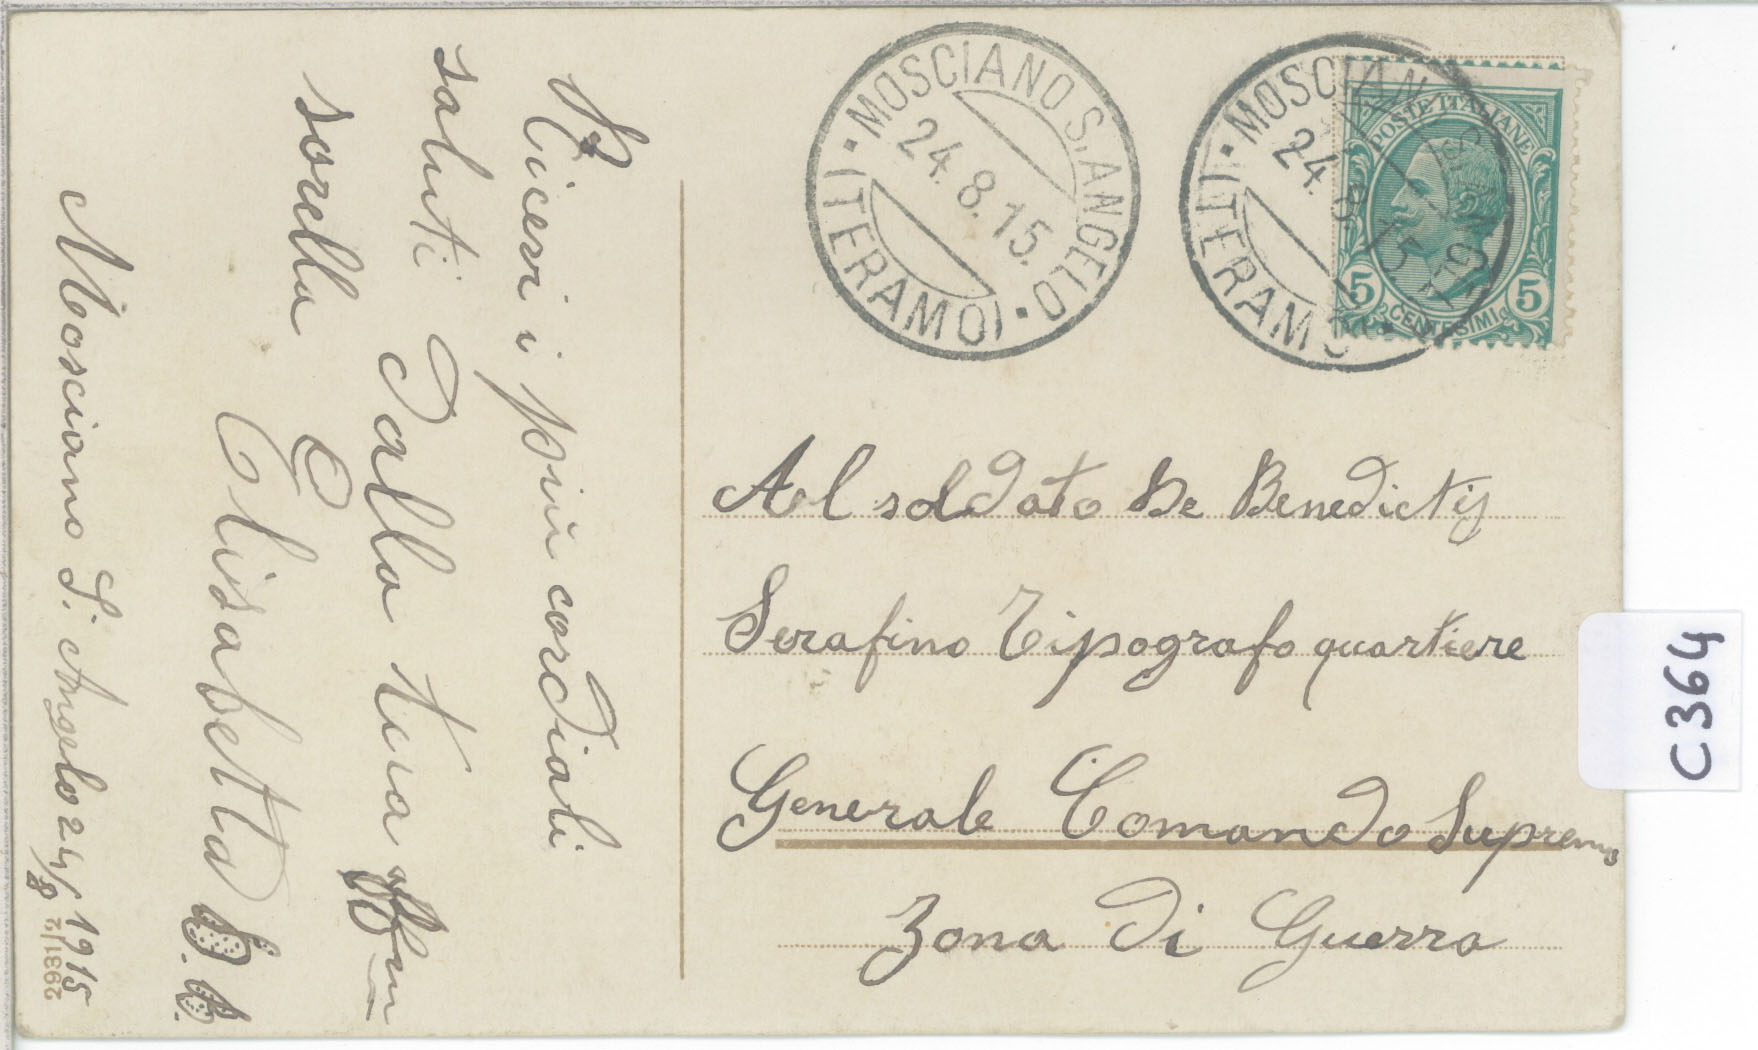 Ricevi i più cordiali
saluti dalla tua affma
sorella
Elisabetta D. B.
Mosciano S. Angelo 24/8 1915
2931/2
MOSCIANO S. ANGELO
(TERAMO)
24.8.15.
MOSCIANO S. ANGELO
(TERAMO)
24.8.15
POSTE ITALIANE
5 5
CENTESIMI
Al soldato De Benedictis
Serafino Tipografo quartiere
Generale Comando Supremo
Zona di Guerra
C364